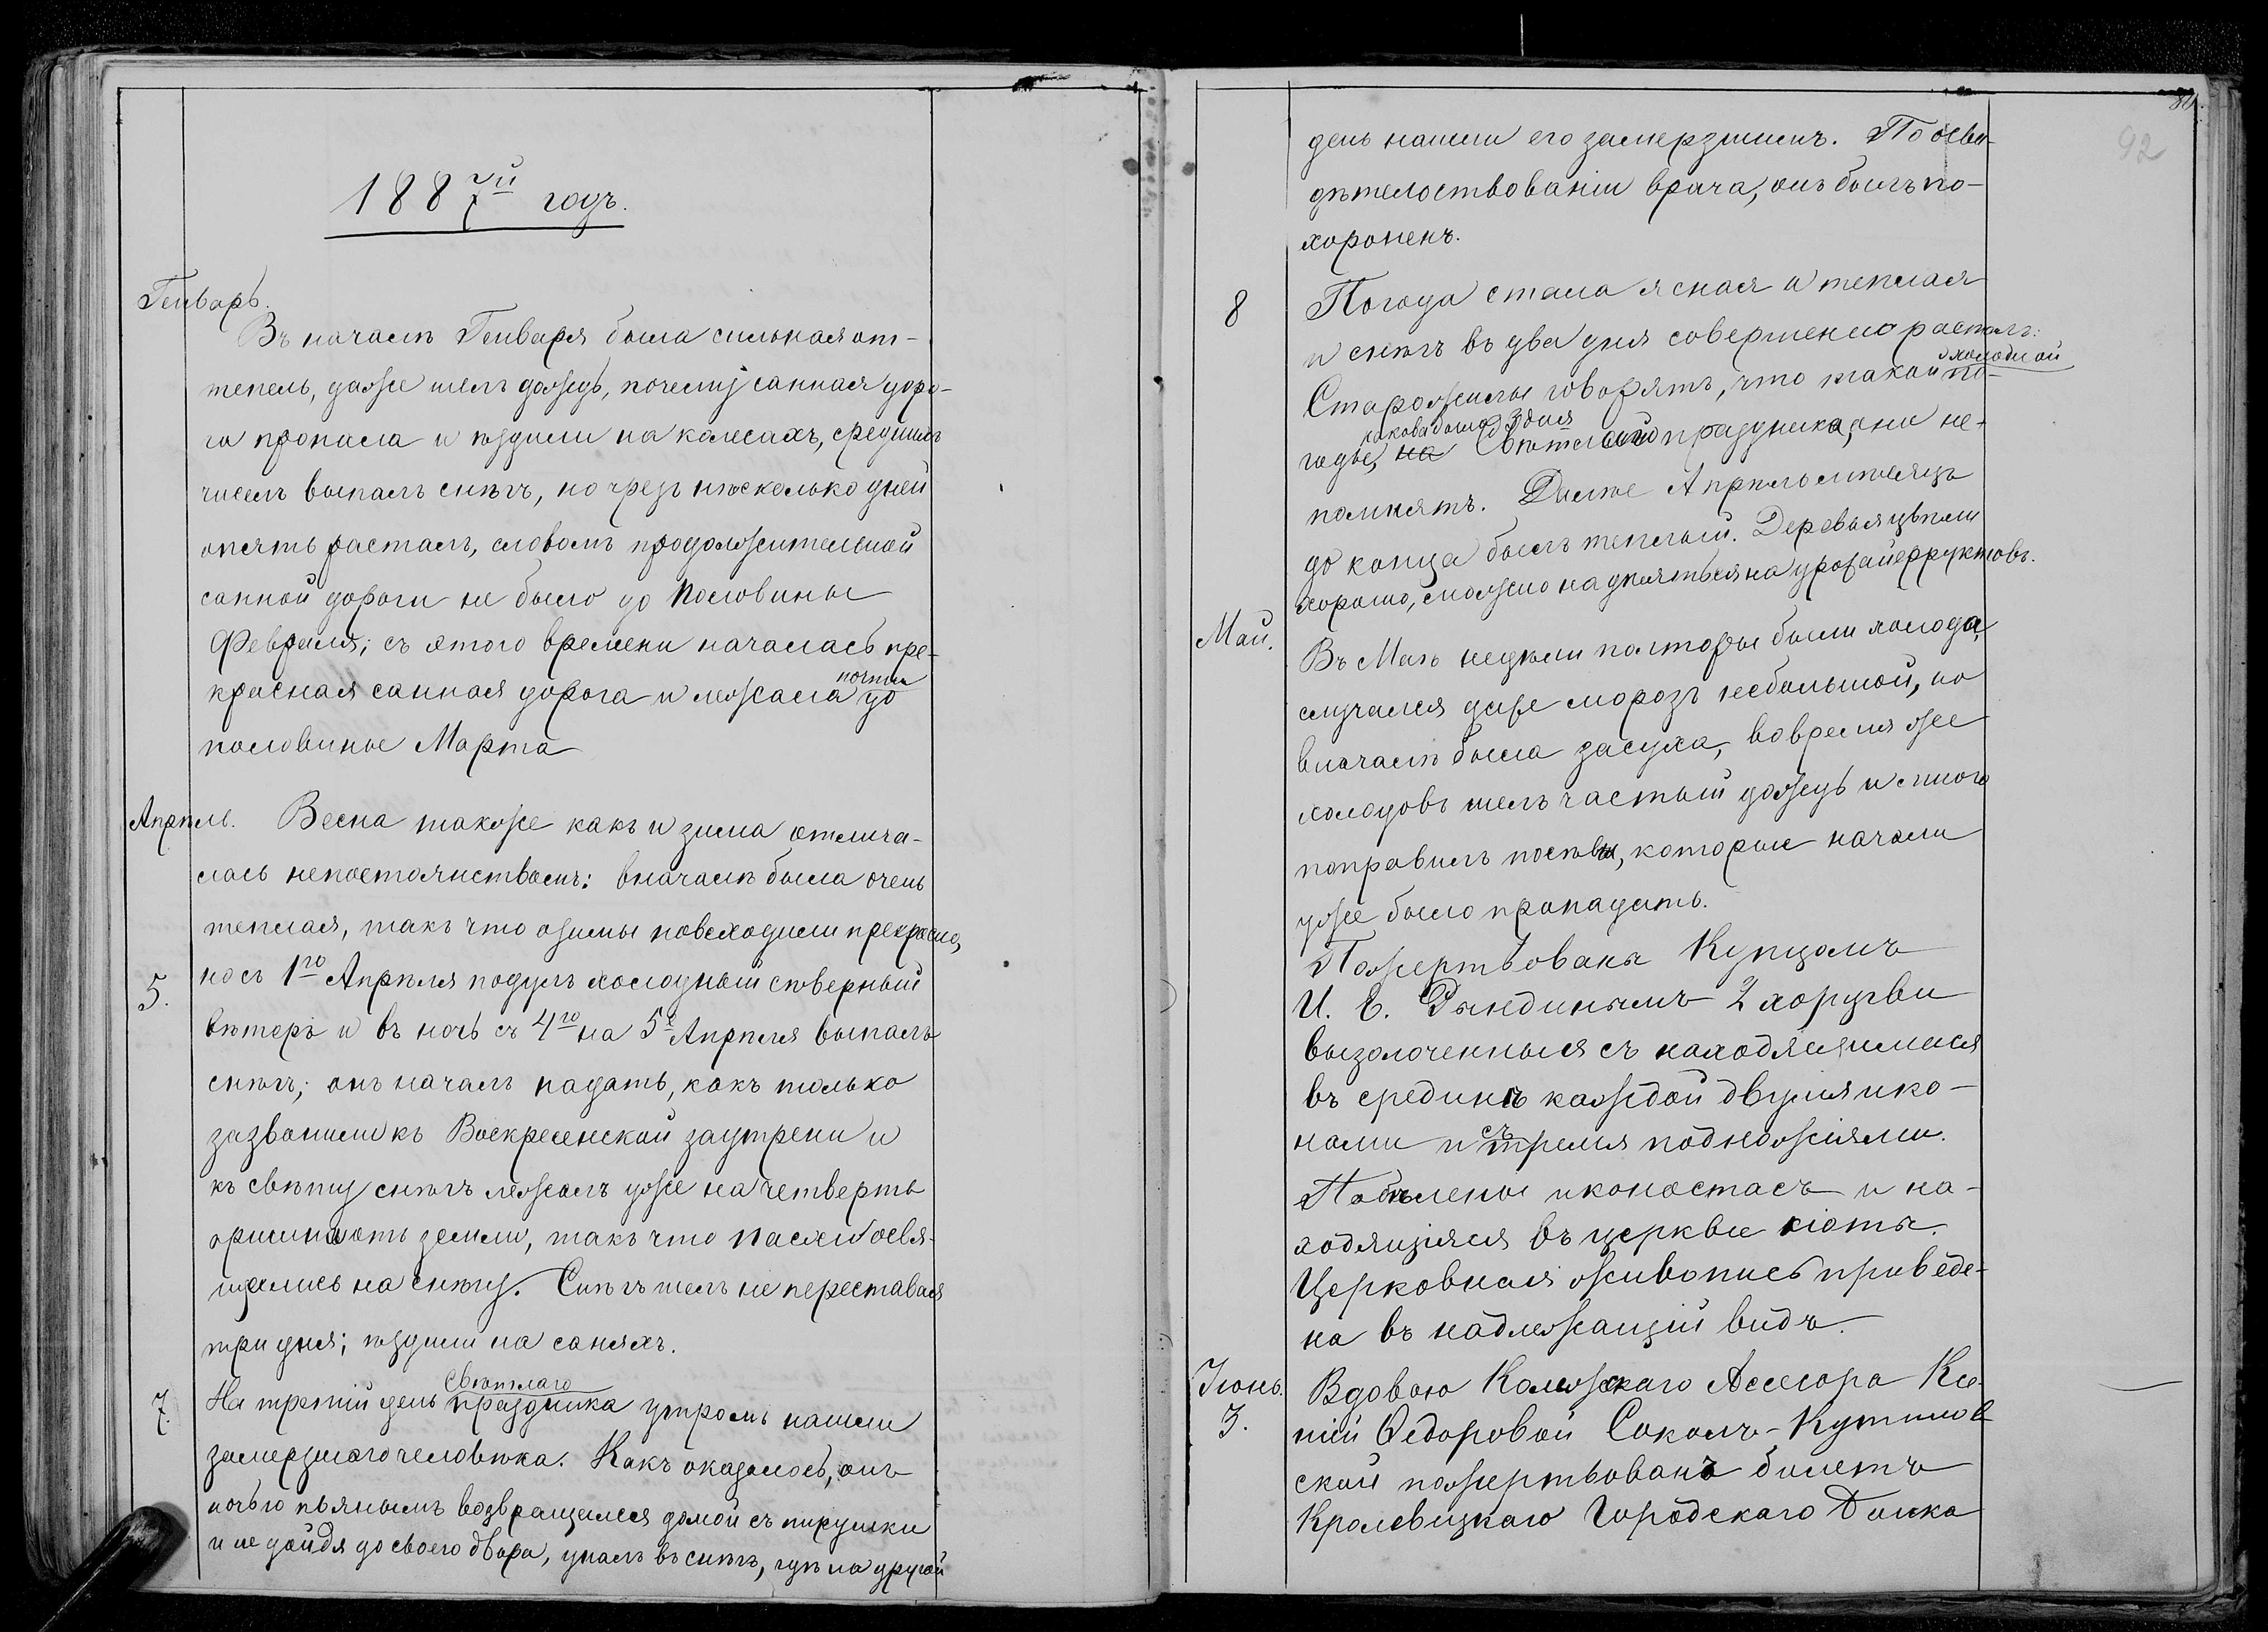 1887й годъ.
Генварь.
Въ началѣ Генваря была сильная от-
тепель, даже шелъ дождь, почему санная доро-
га пропала и ѣздили на колесахъ, среднихъ
чиселъ выпалъ снѣгъ, но чрезъ нѣсколько дней
опять растаялъ, словомъ продолжительной
санной дороги не было до половины
Февраля; съ этого времени началась пре-
красная санная дорога и лежала почти до
половины Марта
Апрѣль. Весна также какъ и зима отлича-
лась непостоянствомъ: вначалѣ была очень
теплая, такъ что озимы повсходили прекрасно,
5. но съ 1го Апрѣля подулъ холодный сѣверный
вѣтеръ и въ ночь съ 4го на 5е Апрѣля выпалъ
снѣгъ; онъ началъ падать, какъ только
зазвонили къ Воскресенской заутрени и
къ свѣту снѣгъ лежалъ уже на четверть
аршина отъ земли, такъ что пасхи освя-
щались на снѣгу. Снѣгъ шелъ не переставая
три дня; ѣздили на саняхъ.
7. На третій день Свѣтлаго праздника утромъ нашли
замерзшаго человѣка. Какъ оказалось, онъ
ночью пьянымъ возвращался домой съ пирушки
и не дойдя до своего двора, упалъ въ снѣгъ, гдѣ на другой
92
день нашли его замерзшимъ. По осви-
дѣтельствованіи врача, онъ былъ по-
хороненъ.
8 Погода стала ясная и теплая
и снѣгъ въ два дня совершенно растаялъ:
Старожилы говорятъ, что такой холодной по-
годы, какова была въ 3 дня на Свѣтлаго праздника, они не-
помнятъ. Далѣе Апрѣль мѣсяцъ
до конца былъ теплый. Деревья цвѣли
хорошо, можно надѣяться на урожай фруктовъ.
Май. Въ Маѣ недѣли полторы были холода,
случался даже морозъ небольшой, но
вначалѣ была засуха, во время же
холодовъ шелъ частый дождь и много
поправилъ посѣвы, которые начали
уже было пропадать.
Пожертвована Купцомъ
И. Е. Рындинымъ 2 хоругви
вызолоченныя съ находящимися
въ срединѣ каждой двумя ико-
нами и съ тремя подножіями.
Побѣлены иконостасъ и на-
ходящіяся въ церкви кіоты.
Церковная живопись приведе-
на въ надлежащій видъ.
Іюнь.
3. Вдовою Колежскаго Ассесора Ксе-
ніи Ѳедоровой Соколъ-Кутилов
ской пожертвованъ билетъ
Кролевецкаго Городского Банка